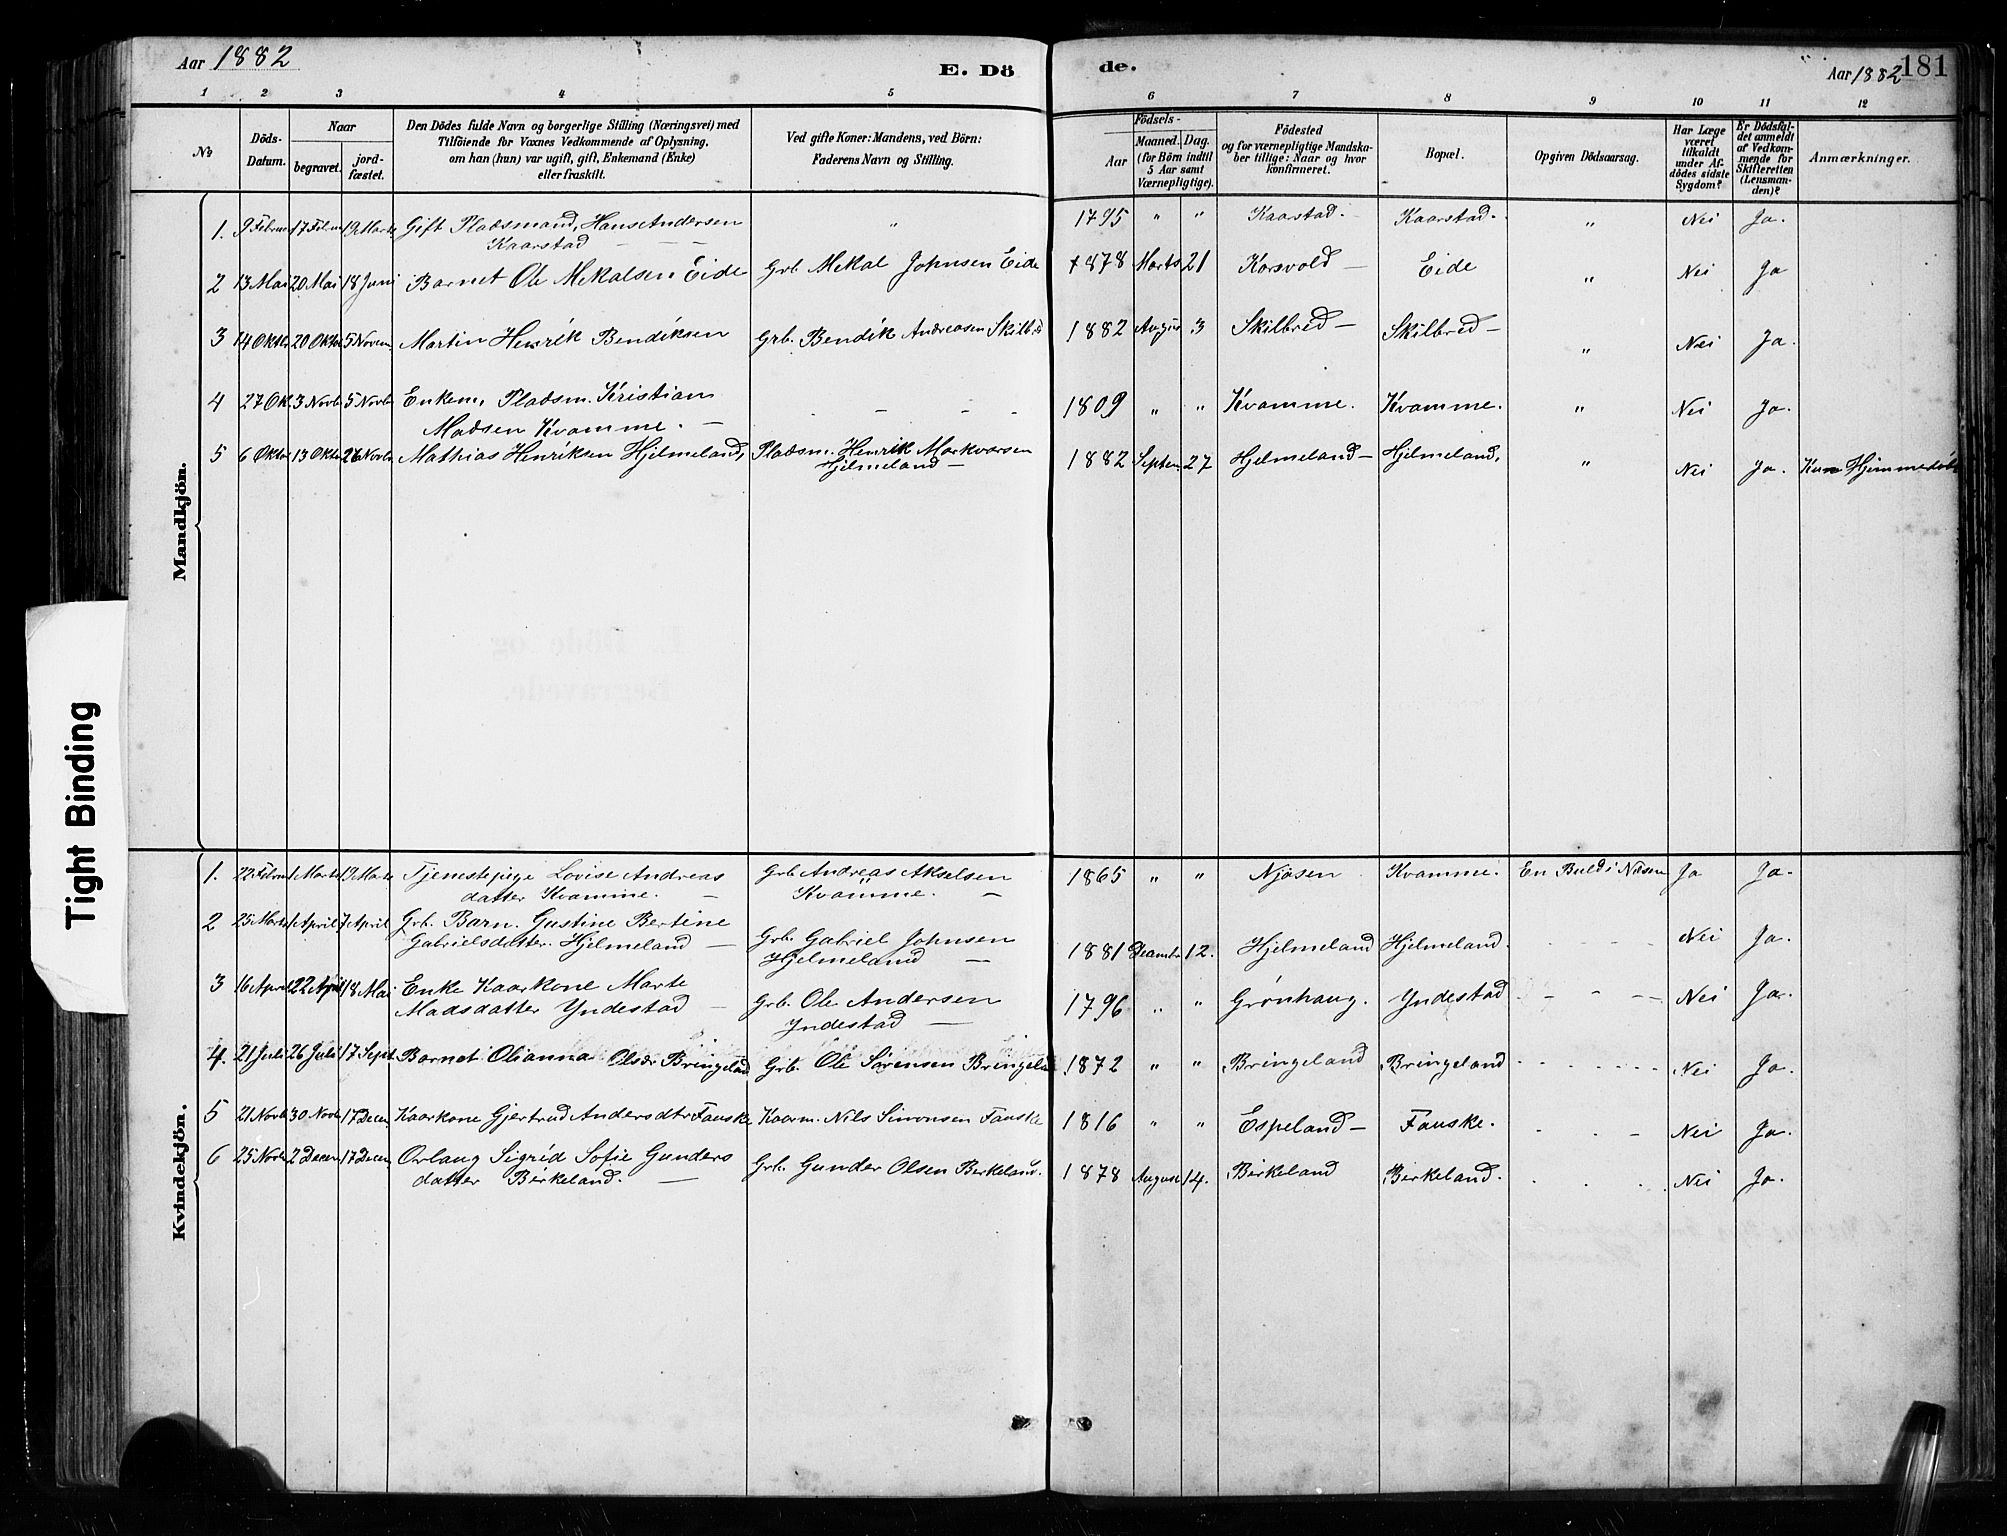 Aar 1882
E. Dö
de.
Aar 1882 181
1 2 3 4 5 6 7 8 9 10 11 12
№
Döds-
Datum.
Naar
begravet.
jord-
fæstet.
Den Dödes fulde Navn og borgerlige Stilling (Næringsvei) med
Tilföiende for Voxnes Vedkommende af Oplysning,
om han (hun) var ugift, gift, Enkemand (Enke)
eller fraskilt.
Ved gifte Koner: Mandens, ved Börn:
Faderens Navn og Stilling.
Födsels-
Aar
Maaned. Dag.
(for Börn indtil
5 Aar samt
Værnepligtige).
Födested
og for værnepligtige Mandska-
ber tillige: Naar og hvor
konfirmeret.
Bopæl.
Opgiven Dödsaarsag.
Har Læge
været
tilkaldt
under Af-
dödes sidste
Sygdom?
Er Dödsfal-
det anmeldt
af Vedkom-
mende for
Skifteretten
(Lensman-
den)?
Anmærkninger.
Mandkjön.
1. 9 Febru 17 Febru 19 Marts Gift Pladsmand, Hans Andersen " 1795 " " Kaarstad. - Kaarstad. " Nei Ja.
Kaarstad - - -
2 13 Mai 20 Mai 18 Juni Barnet Ole Mekalsen Eide Grb. Mekal Johnsen Eide 1878 Marts 21 Korsvold - Eide " Nei Ja
3 14 Oktb 20 Oktb 5 Novem Martin Henrik Bendiksen Grb. Bendik Andreasen Skilbred 1882 August 3 Skilbred - Skilbred - " Nei Ja.
4 27 Ok. 3 Novb 5 Novb Enkem. Pladsm. Kristian - - - - 1809 " " Kvamme. Kvamme. " Nei Ja.
Madsen Kvamme. -
5 6 Oktob 13 Oktb 26 Novb Mathias Henriksen Hjelmeland, Pladsm. Henrik Markvorsen 1882 Septem 27 Hjelmeland - Hjelmeland, " Nei Ja. Kun Hjemmedöbt
Hjelmeland -
Kvindekjön.
1. 22 Febru 1 Marts 19 Marts Tjenestepige Lovise Andreas Grb Andreas Akselsen 1865 " " Njøsen Kvamme. En Buld i Næsen Ja Ja.
datter Kvamme. - Kvamme. -
2 25 Marts 1 April 7 April Grb. Barn. Gustine Bertine
Gabrielsdatter. Hjelmeland - Grb. Gabriel Johnsen 1881 Decembr 12. Hjelmeland Hjelmeland. - - - - Nei Ja.
Hjelmeland -
3 16 April 22 April 18 Mai Enke Kaarkone Marte
Madsdatter Yndestad - Grb. Ole Andersen 1796 " " Grønhaug. Yndestad - - - - Nei Ja.
Yndestad -
4. 21 Juli 26 Juli 17 Sept. Barnet Olianna Olsdr Bringeland Grb. Ole Sørensen Bringelan 1872 " " Bringeland Bringeland - - - - Nei Ja.
5 21 Novb 30 Novb 17 Decem Kaarkone Gjertrud Andersdtr Fauske Kaarm. Nils Simonsen Fauske 1816 " " Espeland - Fauske. . . - Nei Ja.
6 25 Novb 2 Decem 17 Decem Orlaug Sigrid Sofie Gunders Grb. Gunder Olsen Berkeland. 1878 August 14. Birkeland Berkeland. . . . Nei Ja.
datter Birkeland. -
Tight Binding